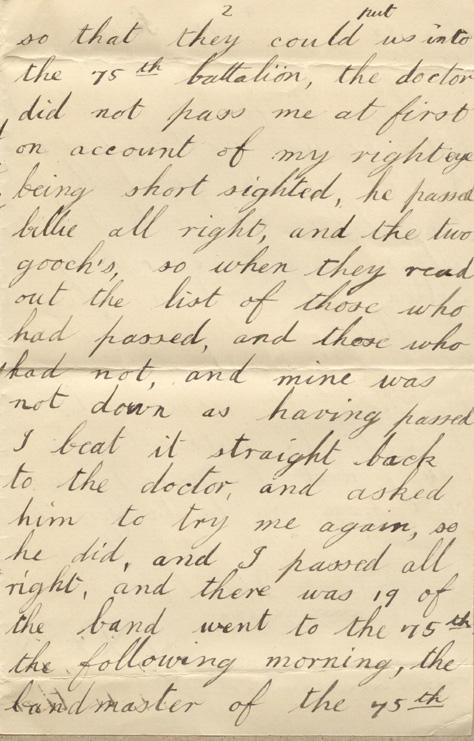 2
put
so that they could us into
the 75th battalion, the doctor
did not pass me at first
on account of my right eye
being short sighted, he passed
billie all right, and the two
gooch's, so when they read
out the list of those who
had passed, and those who
had not, and mine was
not down as having passed
I beat it straight back
to the doctor, and asked
him to try me again, so
he did, and I passed all
right, and there was 19 of
the band went to the 75th
the following morning, the
bandmaster of the 75th